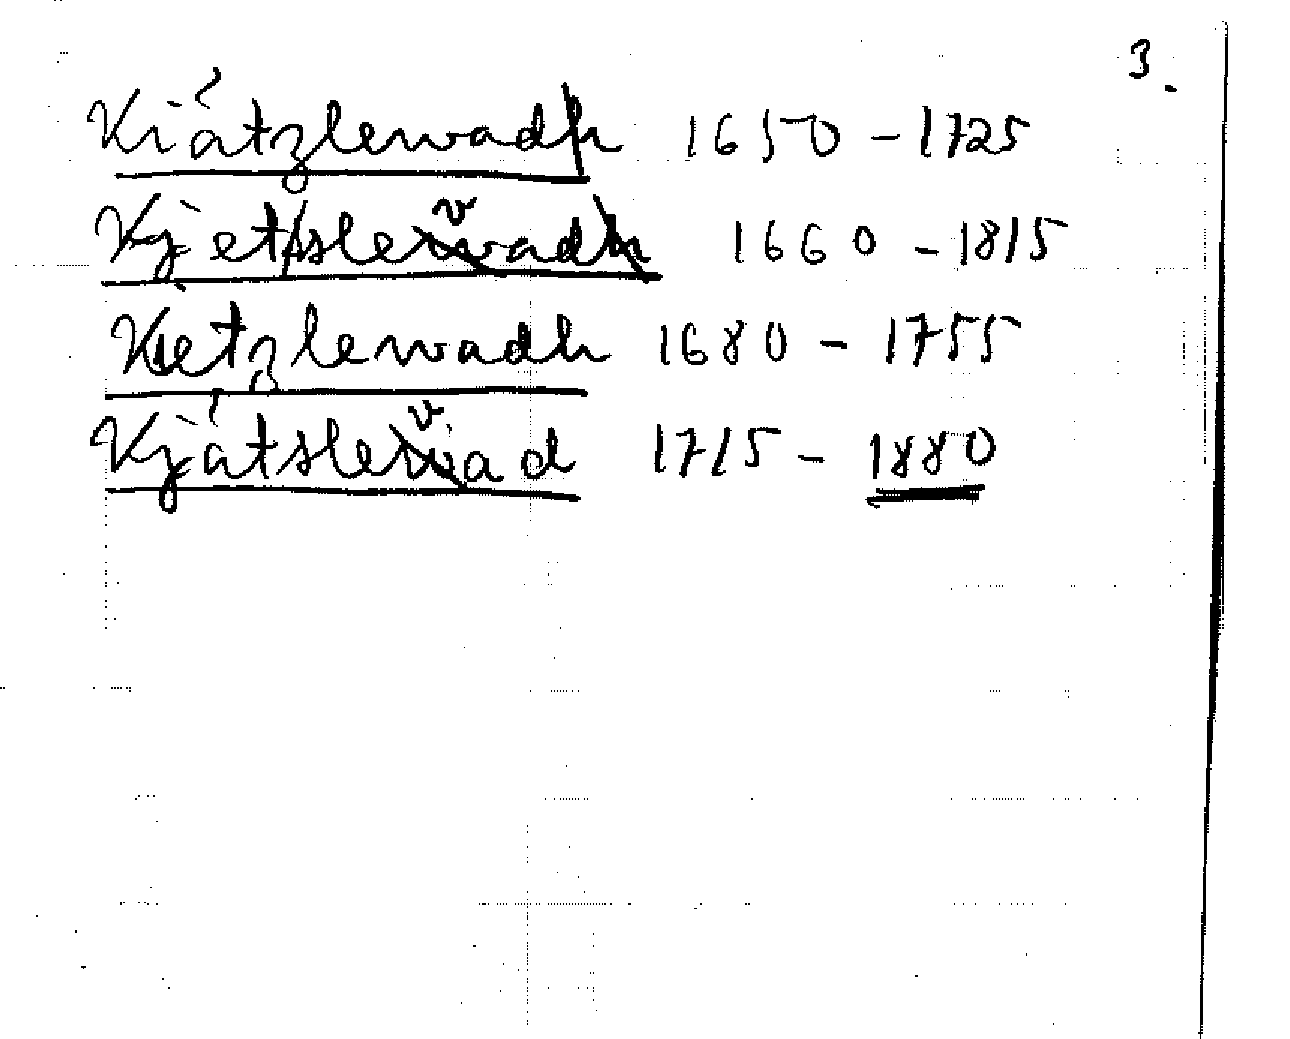 3.
Kiátzlewadh 1650 - 1725
Kjetslevadh 1660 - 1815
Kietzlewadh 1680 - 1755
Kjátslevad 1715 - 1880